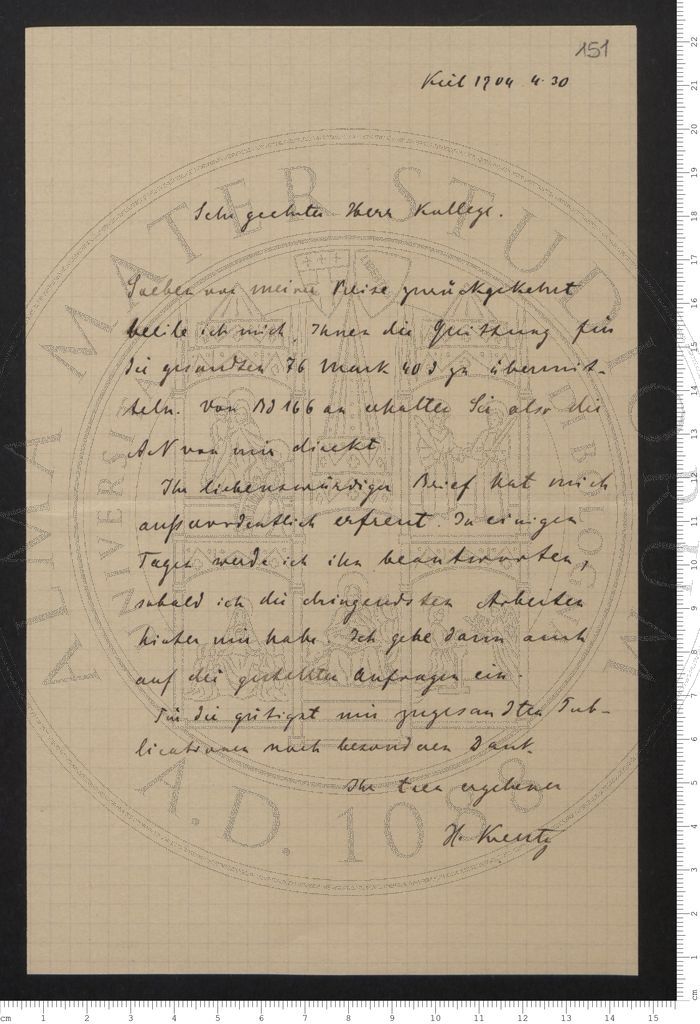 151
Kiel 1904 4.30
Sehr geehrter Herr Kollege.
Soeben von meiner Reise zurückgekehrt
beeile ich mich, Ihnen die Quittung für
die gesandten 76 Mark 40 d zu übermit-
teln. Von Bd 166 an erhalten Sie also die
AN von mir direkt
Ihr liebenswürdiger Brief hat mich
ausserordentlich erfreut. In einigen
Tagen werde ich ihn beantworten,
sobald ich die dringendsten Arbeiten
hinter mir habe. Ich gehe dann auch
auf die gestellten Anfragen ein.
Für die gütigst mir zugesandten Pub-
licationen noch besonderen Dank.
Ihr treu ergebener
H. Kreutz
ALMA MATER STUDIORUM
A.D. 1088